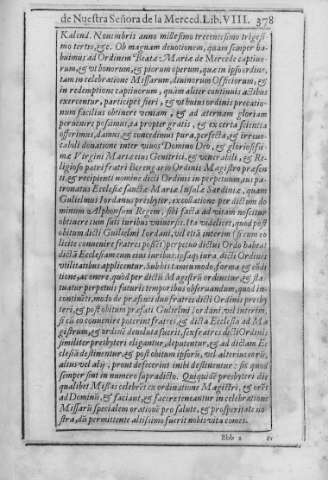 de Nuestra Señora de la Merced. Lib. VIII. 378
Kalend. Nouembris anno millesimo trecentesimo trigesi-
mo tertio, &c. Ob magnam deuotionem, quam semper ha-
buimus ad Ordinem Beatæ Mariæ de Mercede captiuo-
rum, & vt bonorum, & piorum operum, quæ in ipso diuini,
tam in celebratione Missarum, diuinorum Officiorum, &
in redemptione captiuorum, quàm aliter continuis actibus
exercentur, participes fieri, & vt huiusmodi precatio-
num facilius obtinere veniam, & ad æternam gloriam
peruenire possimus, ea propter gratis, & ex certa scientia
offerimus, damus, & concedimus pura, perfecta, & irreuo-
cabili donatione inter viuos Domino Deo, & gloriosissi-
mæ Virgini Mariæ eius Genitrici, & venerabili, & Re-
ligioso patri fratri Berengario Ordinis Magistro præsen-
ti & recipienti nomine dicti Ordinis in perpetuum, ius pa-
tronatus Ecclesiæ sanctæ Mariæ Insulæ Sardiniæ, quam
Guilielmus Iordanus presbyter, ex collatione per dictum do-
minum Alphonsum Regem, sibi facta ad vitam noscitur
obtinere cum suis iuribus vniuersis. Ita videlicet, quod post
obitum dicti Guilielmi Iordani, vel etiã interim (si cum eo
licite conuenire fratres possent) perpetuo dictus Ordo habeat
dictã Ecclesiam cum eius iuribus, ipsaq; iura dicti Ordinis
vtilitatibus applicentur. Sub hoc tamen modo, forma, & cõdi-
tione, ac onere, quòd per dictũ Magistrũ ordinetur, & sta-
tuatur perpetuis futuris temporibus obseruandum, quod in-
continẽti, modo de præsenti duo fratres dicti Ordinis presby-
teri, & post obitum præfati Guilielmi Iordani vel interim,
si cũ eo conuenire poterint fratres, & dicta Ecclesia ad Ma-
gistrum, & ordinẽ deuoluta fuerit, sex fratres dicti Ordinis
similiter presbyteri eligantur, deputentur, & ad dictam Ec-
clesiã destinentur, & post obitum ipsorũ, vel alterius eorũ,
alius vel alij, prout defecerint inibi destinentur: sic quod
semper sint in numero supradicto. Qui quidẽ presbyteri die
qualibet Missas celebrẽt ex ordinatione Magistri, & orẽt
ad Dominũ, & faciant, & facere teneantur in celebratione
Missarũ specialem orationẽ pro salute, & prosperitate no-
stra, dũ permittente altissimo fuerit nobis vita comes.
Bbb 2 &